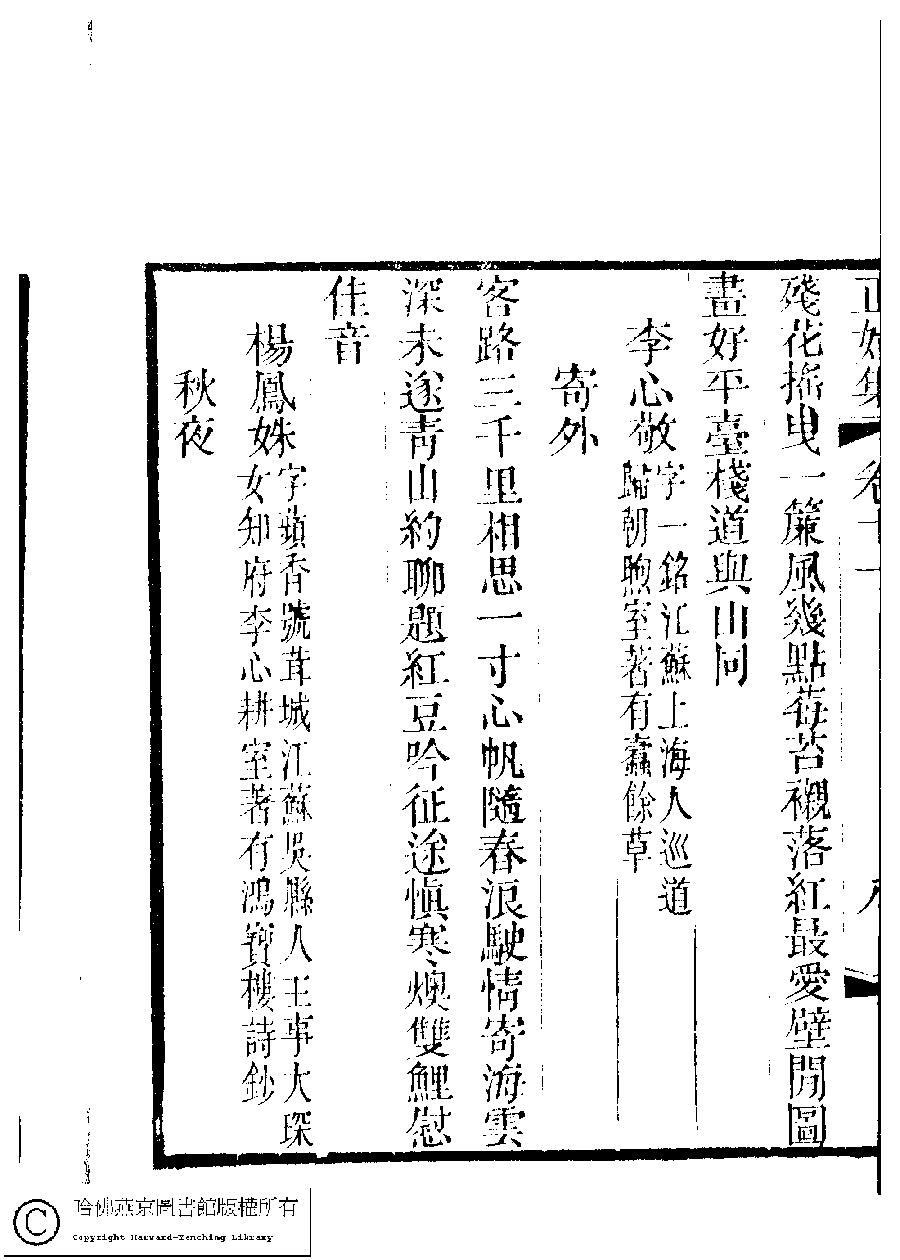 正始集 卷十一 八
殘花搖曳一簾風幾點莓苔襯落紅最愛壁閒圖
畫好平臺棧道與山同
李心敬字一銘江蘇上海人巡道
歸朝煦室著有蠹餘草
寄外
客路三千里相思一寸心帆隨春浪駛情寄海雲
深未遂青山約聊題紅豆吟征途慎寒燠雙鯉慰
佳音
楊鳳姝字蘋香號茸城江蘇吳縣人主事大琛
女知府李心耕室著有鴻寶樓詩鈔
秋夜
哈佛燕京圖書館版權所有
Copyright Harvard-Yenching Library